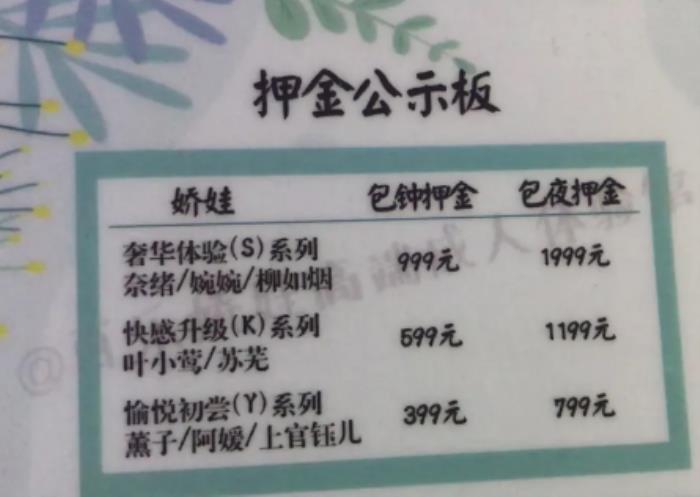 押金公示板
娇娃 包钟押金 包夜押金
奢华体验(S)系列 999元 1999元
奈绪/婉婉/柳如烟
快感升级(K)系列 599元 1199元
叶小莺/苏芜
愉悦初尝(Y)系列 399元 799元
薰子/阿媛/上官钰儿